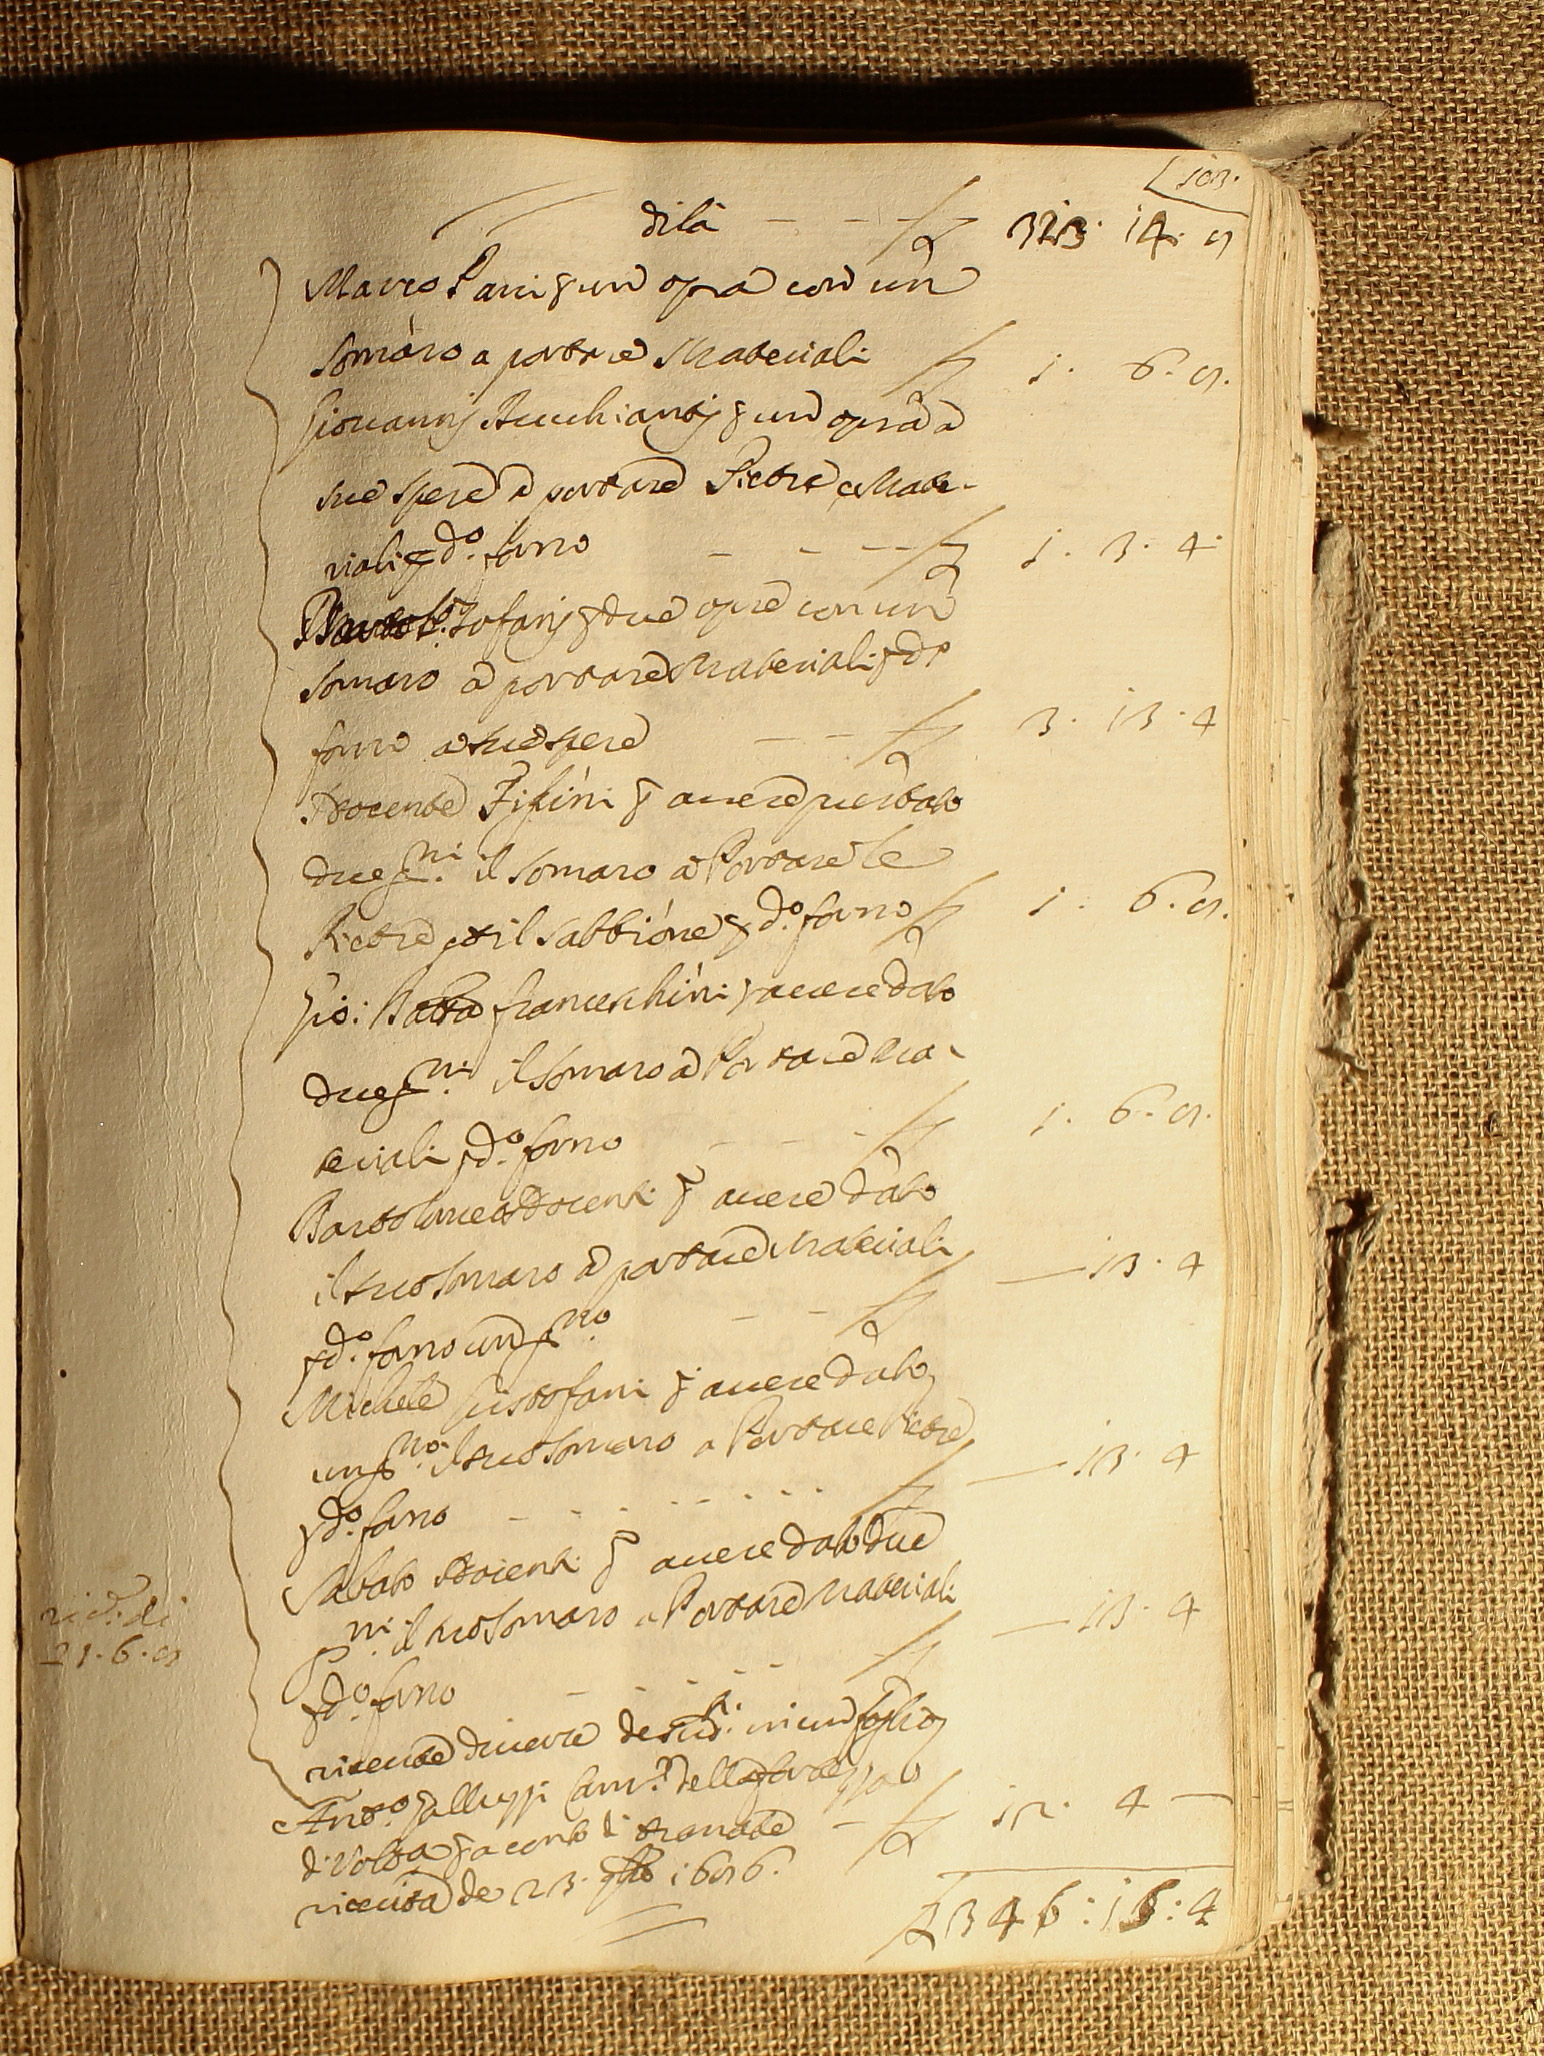 103.
di là - - - £ 323. 14. 8
Marco Pani p un opra con un
somaro a portare Materiali £ 1. 6. 8.
Giovannj p un opra a
sue spese a portare Pietre e Mate-
riali p d.o forno - - - - £ 1. 3. 4.
Bartol.o Tofanj p due opre con un
somaro a portare Materiali p d.o
forno a sue spese - - - £ 3. 13. 4
Innocente Pifini p avere prestato
due g.ni il somaro a Portare le
Pietre et il sabbione p d.o forno £ 1. 6. 8.
Gio: Batta Franceschini p avere dato
due g.ni il somaro a Portare Ma-
teriali p d.o forno - - - £ 1. 6. 8.
Bartolomeo Innocenti p avere dato
il suo somaro a portare Materiali
p d.o forno un g.no - - £ — 13. 4
Michele Cristofani p avere dato
un g.no il suo somaro a Portare Pietre
p d.o forno - - - - - - £ — 13. 4
Sabato Innocenti p avere dato due
g.ni il suo somaro a Portare Materiali
p d.o forno - - - - £ — 13. 4
ric.te di
21. 6. 8
ricevute diverse de in un foglio
Ant.o Galluzzi Cam.o
di Volta p a conto di
ricevuta de 23. 1686.
£ 12. 4 —
£ 346: 16: 4